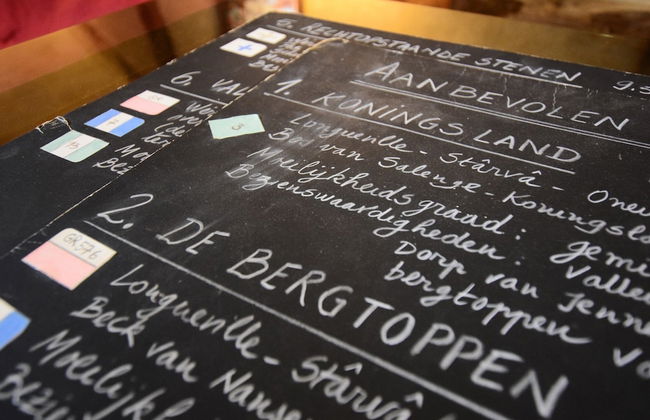 5. RECHTOPSTAANDE STENEN 9.5
6. VAL
AANBEVOLEN
1. KONINGSLAND
Longueville - Stârvâ -
Bad van Salenge - Koningslo
Moeilijkheidsgraad: gemi
Bezienswaardigheden: Vallei
Dorp van Jenn
bergtoppen
3
2. DE BERGTOPPEN
GR576
Longueville - Stârvâ
Beek van Nanse
Moeilijkh
Bezie